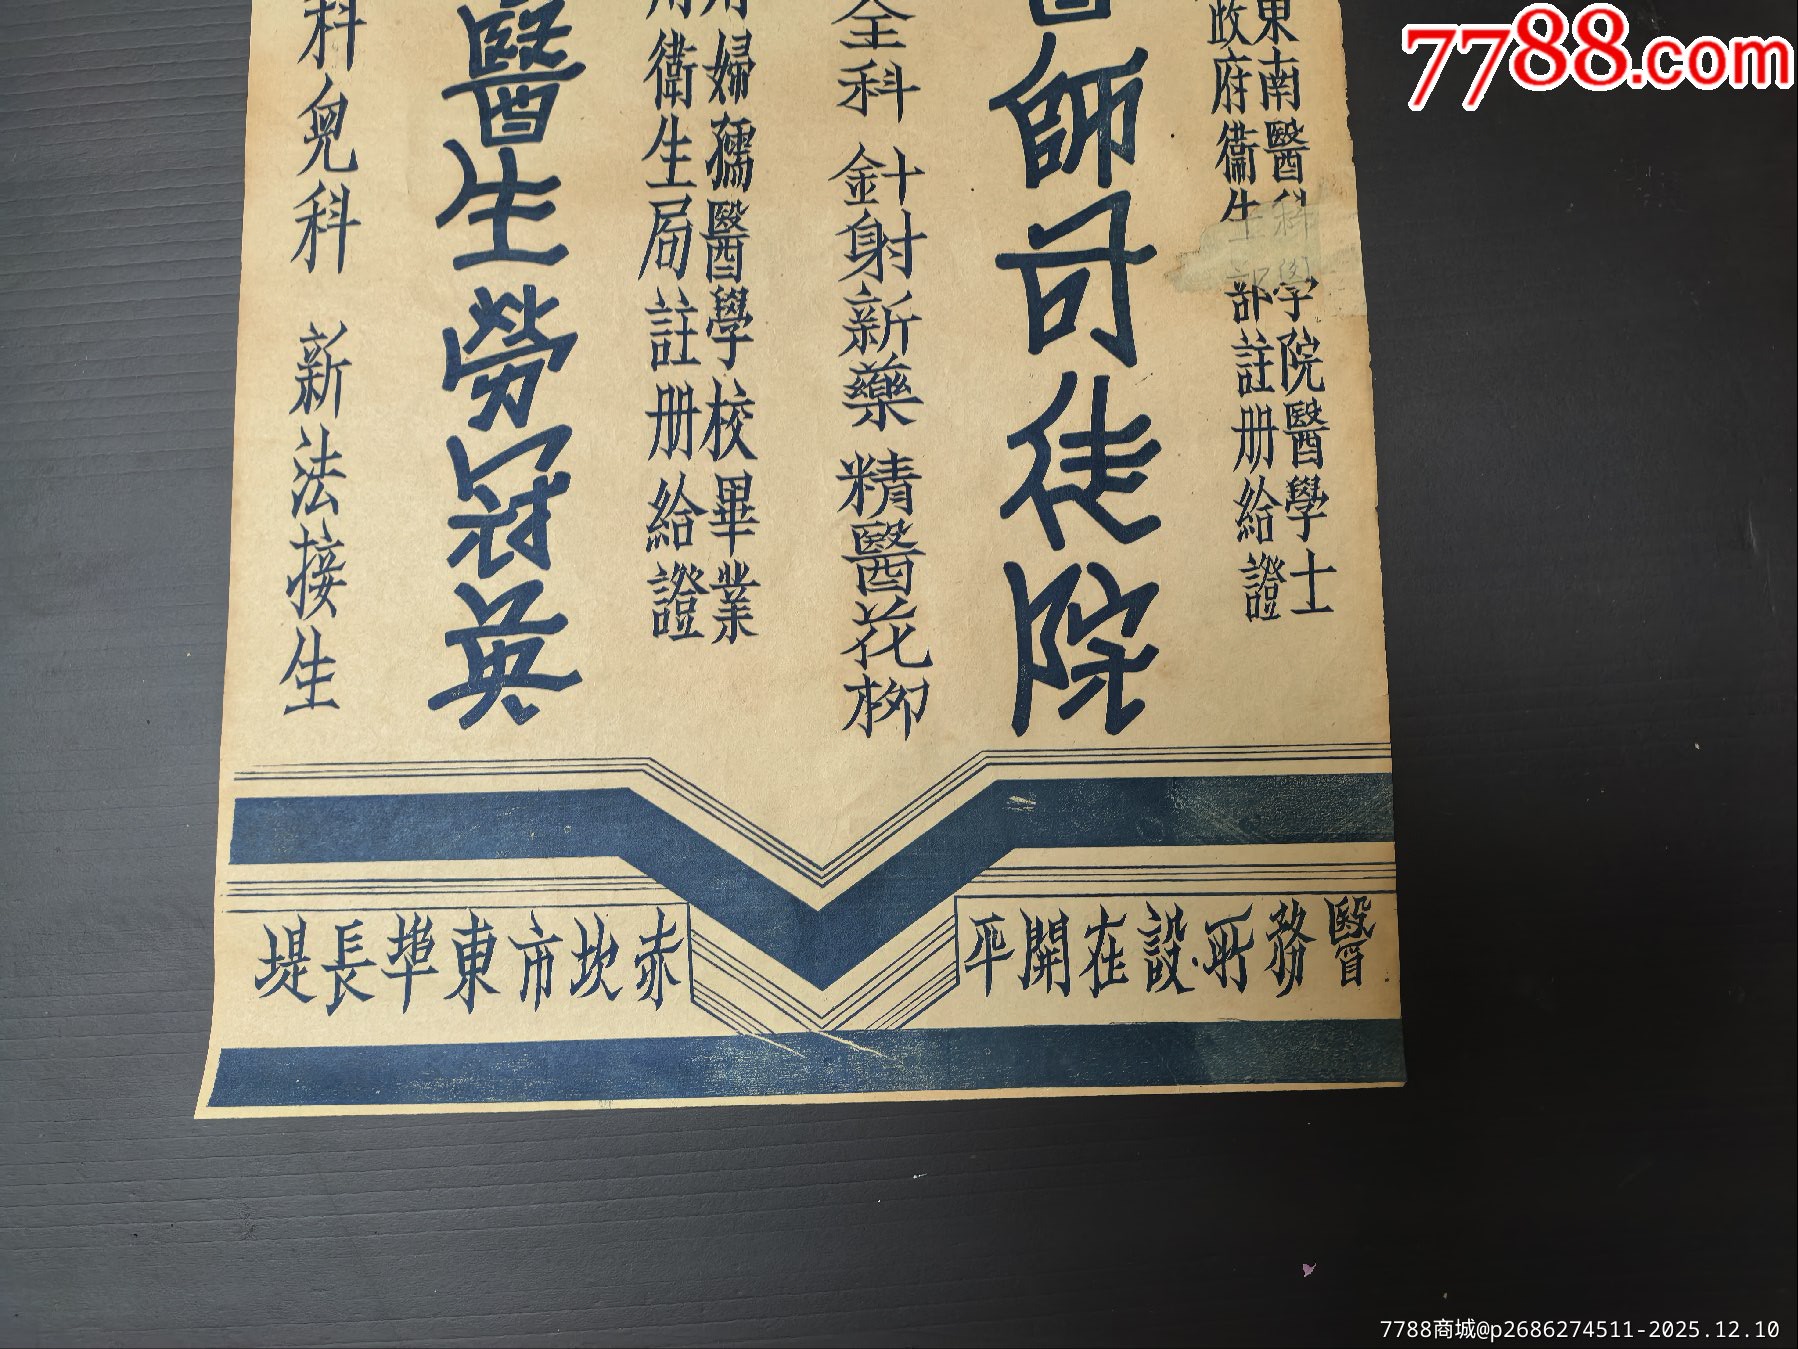 7788.com
東南醫科學院醫學士
政府衞生部註册給證
醫師司徒院
全科 針射新藥 精醫花柳
婦孺醫學校畢業
衛生局註册給證
醫生勞冠英
科兒科 新法接生
醫務所設在開平
赤坎市東埠長堤
7788商城@p2686274511-2025.12.10